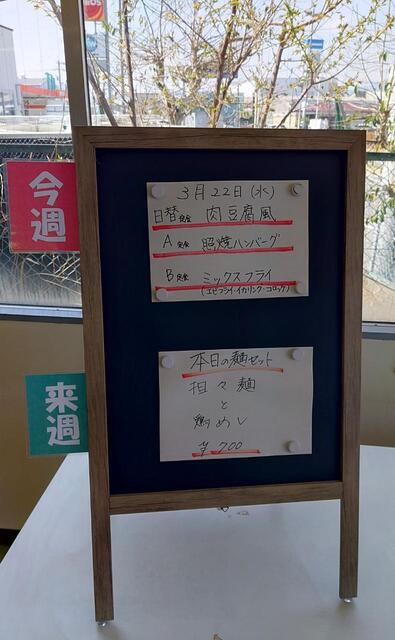 今週
3月22日(水)
日替定食 肉豆腐風
A定食 照焼ハンバーグ
B定食 ミックスフライ
(エビフライ・イカリング・コロッケ)
来週
本日の麺セット
担々麺
と
鶏めし
¥700